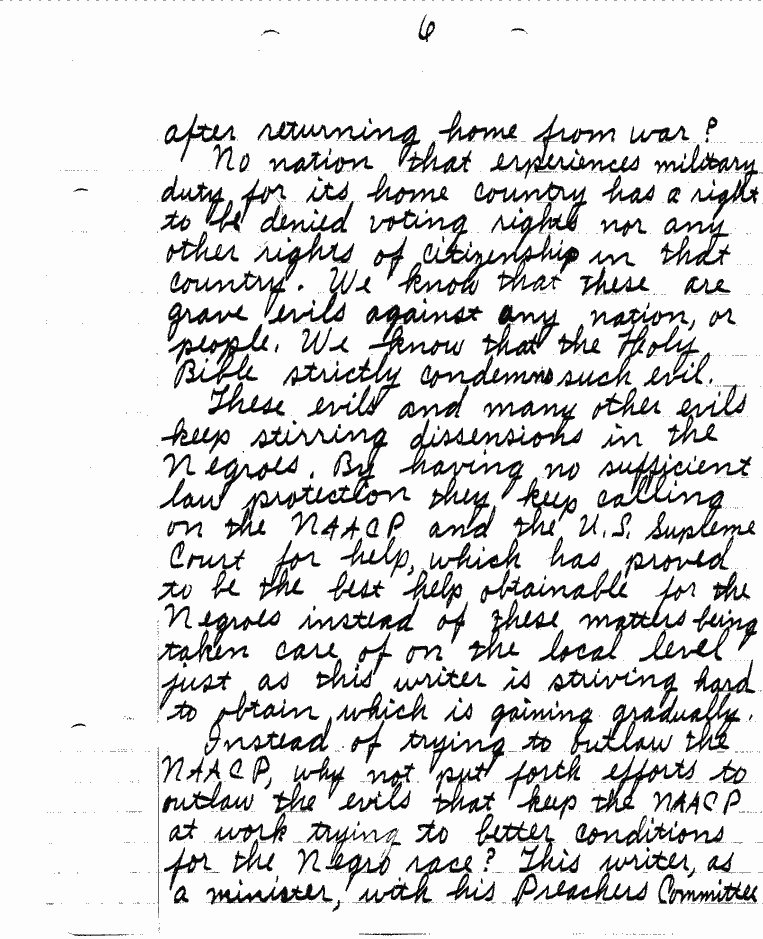 6
after returning home from war?
No nation that experiences military
duty for its home country has a right
to be denied voting rights nor any
other rights of citizenship in that
country. We know that these are
grave evils against any nation, or
people. We know that the Holy
Bible strictly condemns such evil.
These evils and many other evils
keep stirring dissensions in the
Negroes. By having no sufficient
law protection they keep calling
on the NAACP and the U.S. Supreme
Court for help, which has proved
to be the best help obtainable for the
Negroes instead of these matters being
taken care of on the local level
just as this writer is striving hard
to obtain which is gaining gradually.
Instead of trying to outlaw the
NAACP, why not put forth efforts to
outlaw the evils that keep the NAACP
at work trying to better conditions
for the Negro race? This writer, as
a minister, with his Preachers Committee